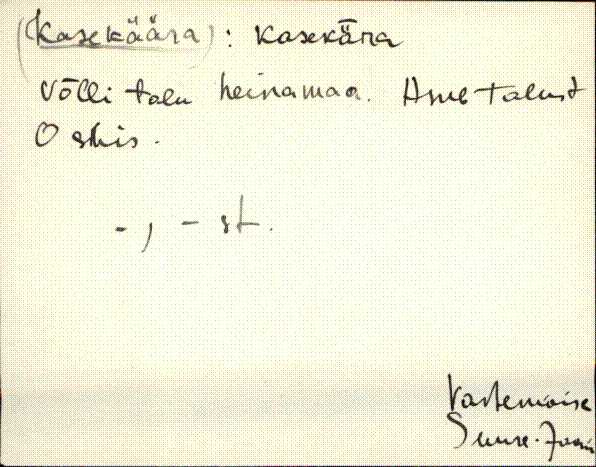 (Kasekäära): kasekǟra
Võlli talu heinamaa. Asub talust
O skis.
-, - st.
Vastemõisa
Suure-Jaani